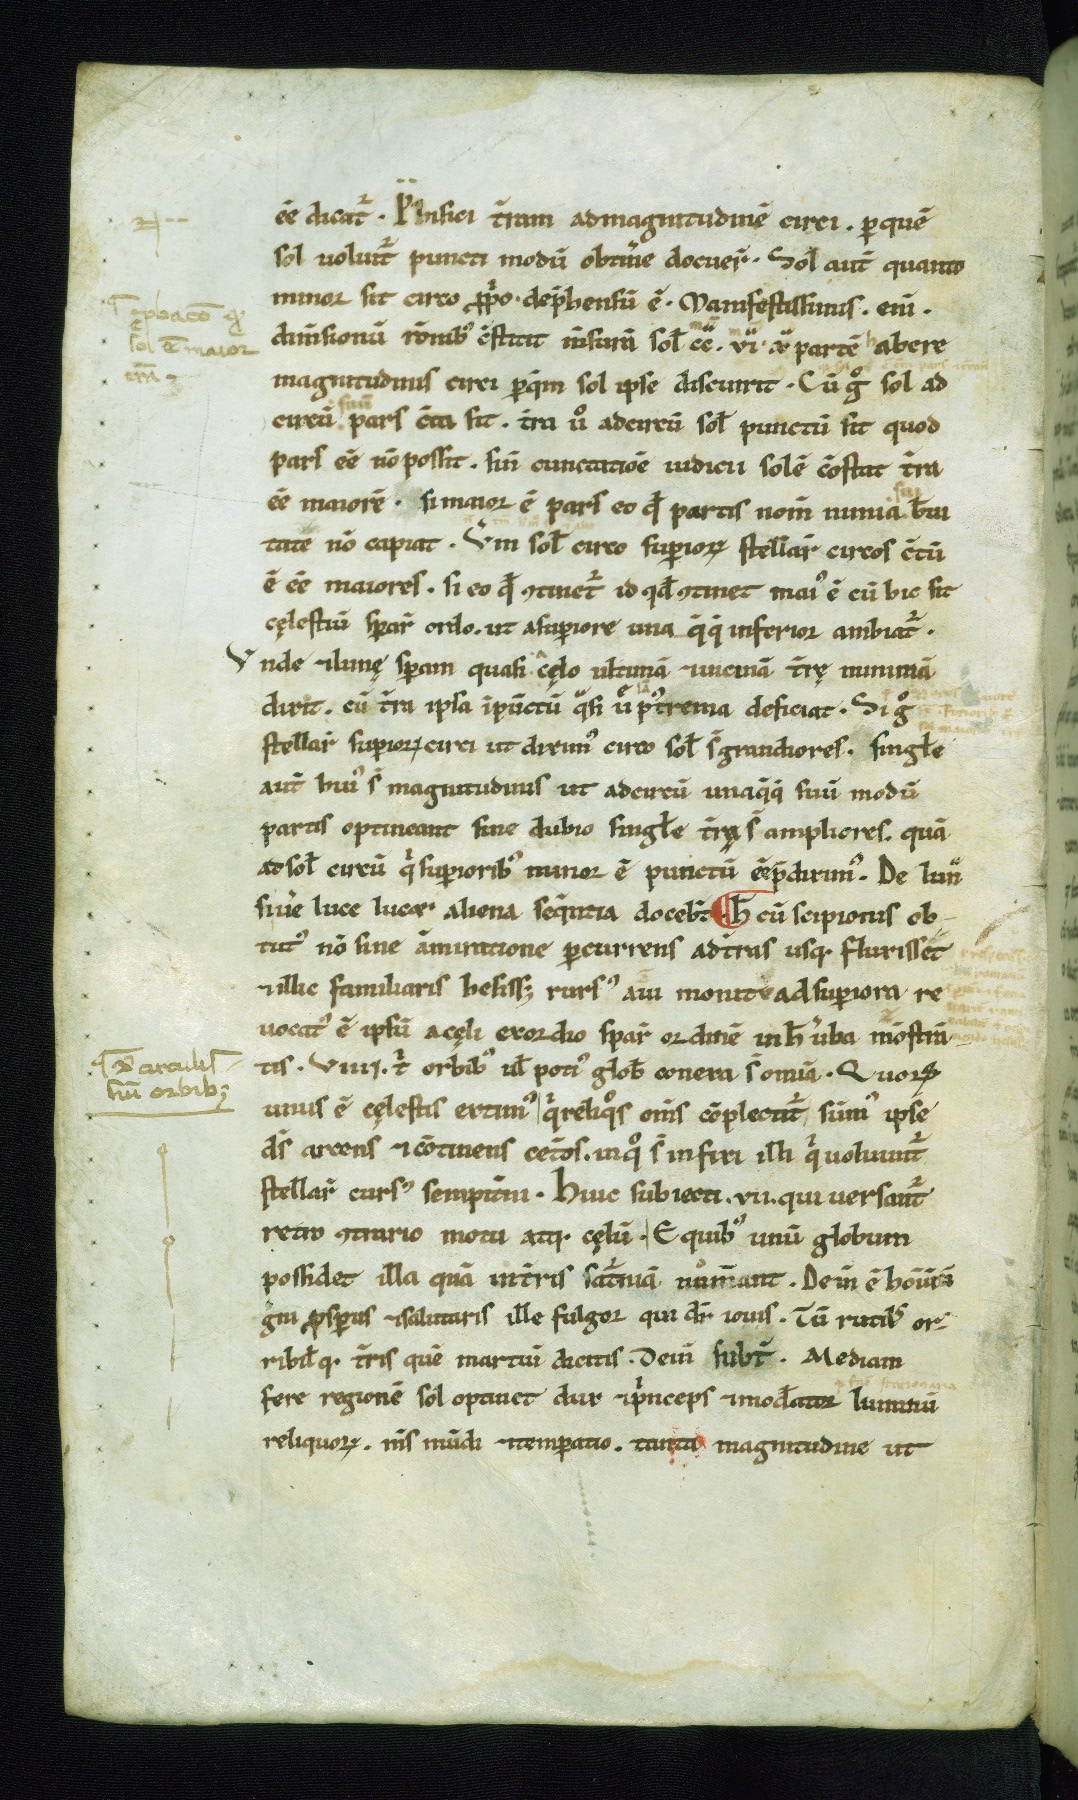 ēē dicat᷑. Phisici t̄ram admagnitudinē circi. ꝑquē
sol voluit᷑ puncti modū obtin̄e docuer̄. Sol aut̄ quanto
minor sit circo ꝓprio. dep̄hensū ē. Manifestissimis. eni᷑.
dim̄sionū rōnib᷒ c̄stitit m̄surā sol̄ ēē. partē habere
magnitudinis circi ꝑq̄m sol ipse discurrit. Cū gͦ sol ad
circū suū pars c̄ta sit. t̄ra ūͦ adcircū sol̄ punctū sit quod
pars ēē nō possit. sin̄ cunctatiōe iudicii solē cōstat t̄ra
ēē maiorē. si maior ē pars eo qd̄ partis nom̄ nimia b̄vi
tate nō capiat. Vm̄ sol̄ circo suꝑioꝝ stellar̄ circos c̄tū
ē ēē maiores. si eo qd̄ ꝯtinet᷑ id qd̄ ꝯtinet mai᷒ ē cū hic sit
cęlestiū sꝑar̄ ordo. ut asuꝑiore una q̄q̄ inferior ambiat᷑.
Vnde ⁊ lunę sꝑam quasi cęlo ultimā ⁊ uicinā t̄rę minimā
dixit. cū t̄ra ipsa ī pūctū q̄si ūͤ postrema deficiat. Si gͦ
stellar̄ suꝑioꝝ circi ut dixim᷒ circo sol̄ s̄ grandiores. singl̄e
aut̄ hui᷒ s̄ magnitudinis ut adcircū unaq̄q̄ suū modū
partis optineant sine dubio singl̄e t̄rą s̄ ampliores. quā
ad sol̄ circū qͥ suꝑiorib᷒ minor ē punctū ēē p̄dixim᷒. De luna
si ūe luce lucꝫ aliena seq̄ntia doceb̄t. H̄ cū scipionis ob
tut᷒ nō sine āmiratione ꝑcurrens ad t̄ras usqꝫ fluxisset
⁊ illic familiaris hesissꝫ rurs᷒ aui monitu ad suꝑiora re
uocat᷒ ē ipsū acęli exordio sꝑar̄ ordinē in h̄ u̅ba mōstrā
tis. Viiij. t᷑ orbib᷒ ul̄ poti᷒ glob̄ conexa s̄ omīa. Quoꝝ
unus ē cęlestis extim᷒ qͥ reliqͦs om̄s cōplectit᷑ sūm᷒ ipse
d̄s arcens ⁊ cōtinens cet̄os. in qͦ s̄ infixi illi qͥ uoluunt᷑
stellar̄ curs᷒ sempit̄ni. Huic subiecti. vii. qui uersant᷑
retro ꝯtrario motu atqꝫ cęlū. E quib᷒ unū globum
possidet illa quā int̄ris sat̄niā nōm̄ant. Dein̄ ē hoīū
gn̄i ꝓsꝑus ⁊ salutaris ille fulgor qui dr̄ iouis. Tū rutil᷒ or
ribil̄qꝫ t̄ris quē martiū dicitis. Dein̄ subt̄. Mediam
fere regionē sol optinet dux ⁊ pͥnceps ⁊ mod̄ator luminū
reliquoꝝ. m̄s mūdi ⁊ temꝑatio. tanta magnitudine ut
ꝓbacō qd̄
sol ē maior
t̄ra.
de circulis
siū orbibꝫ